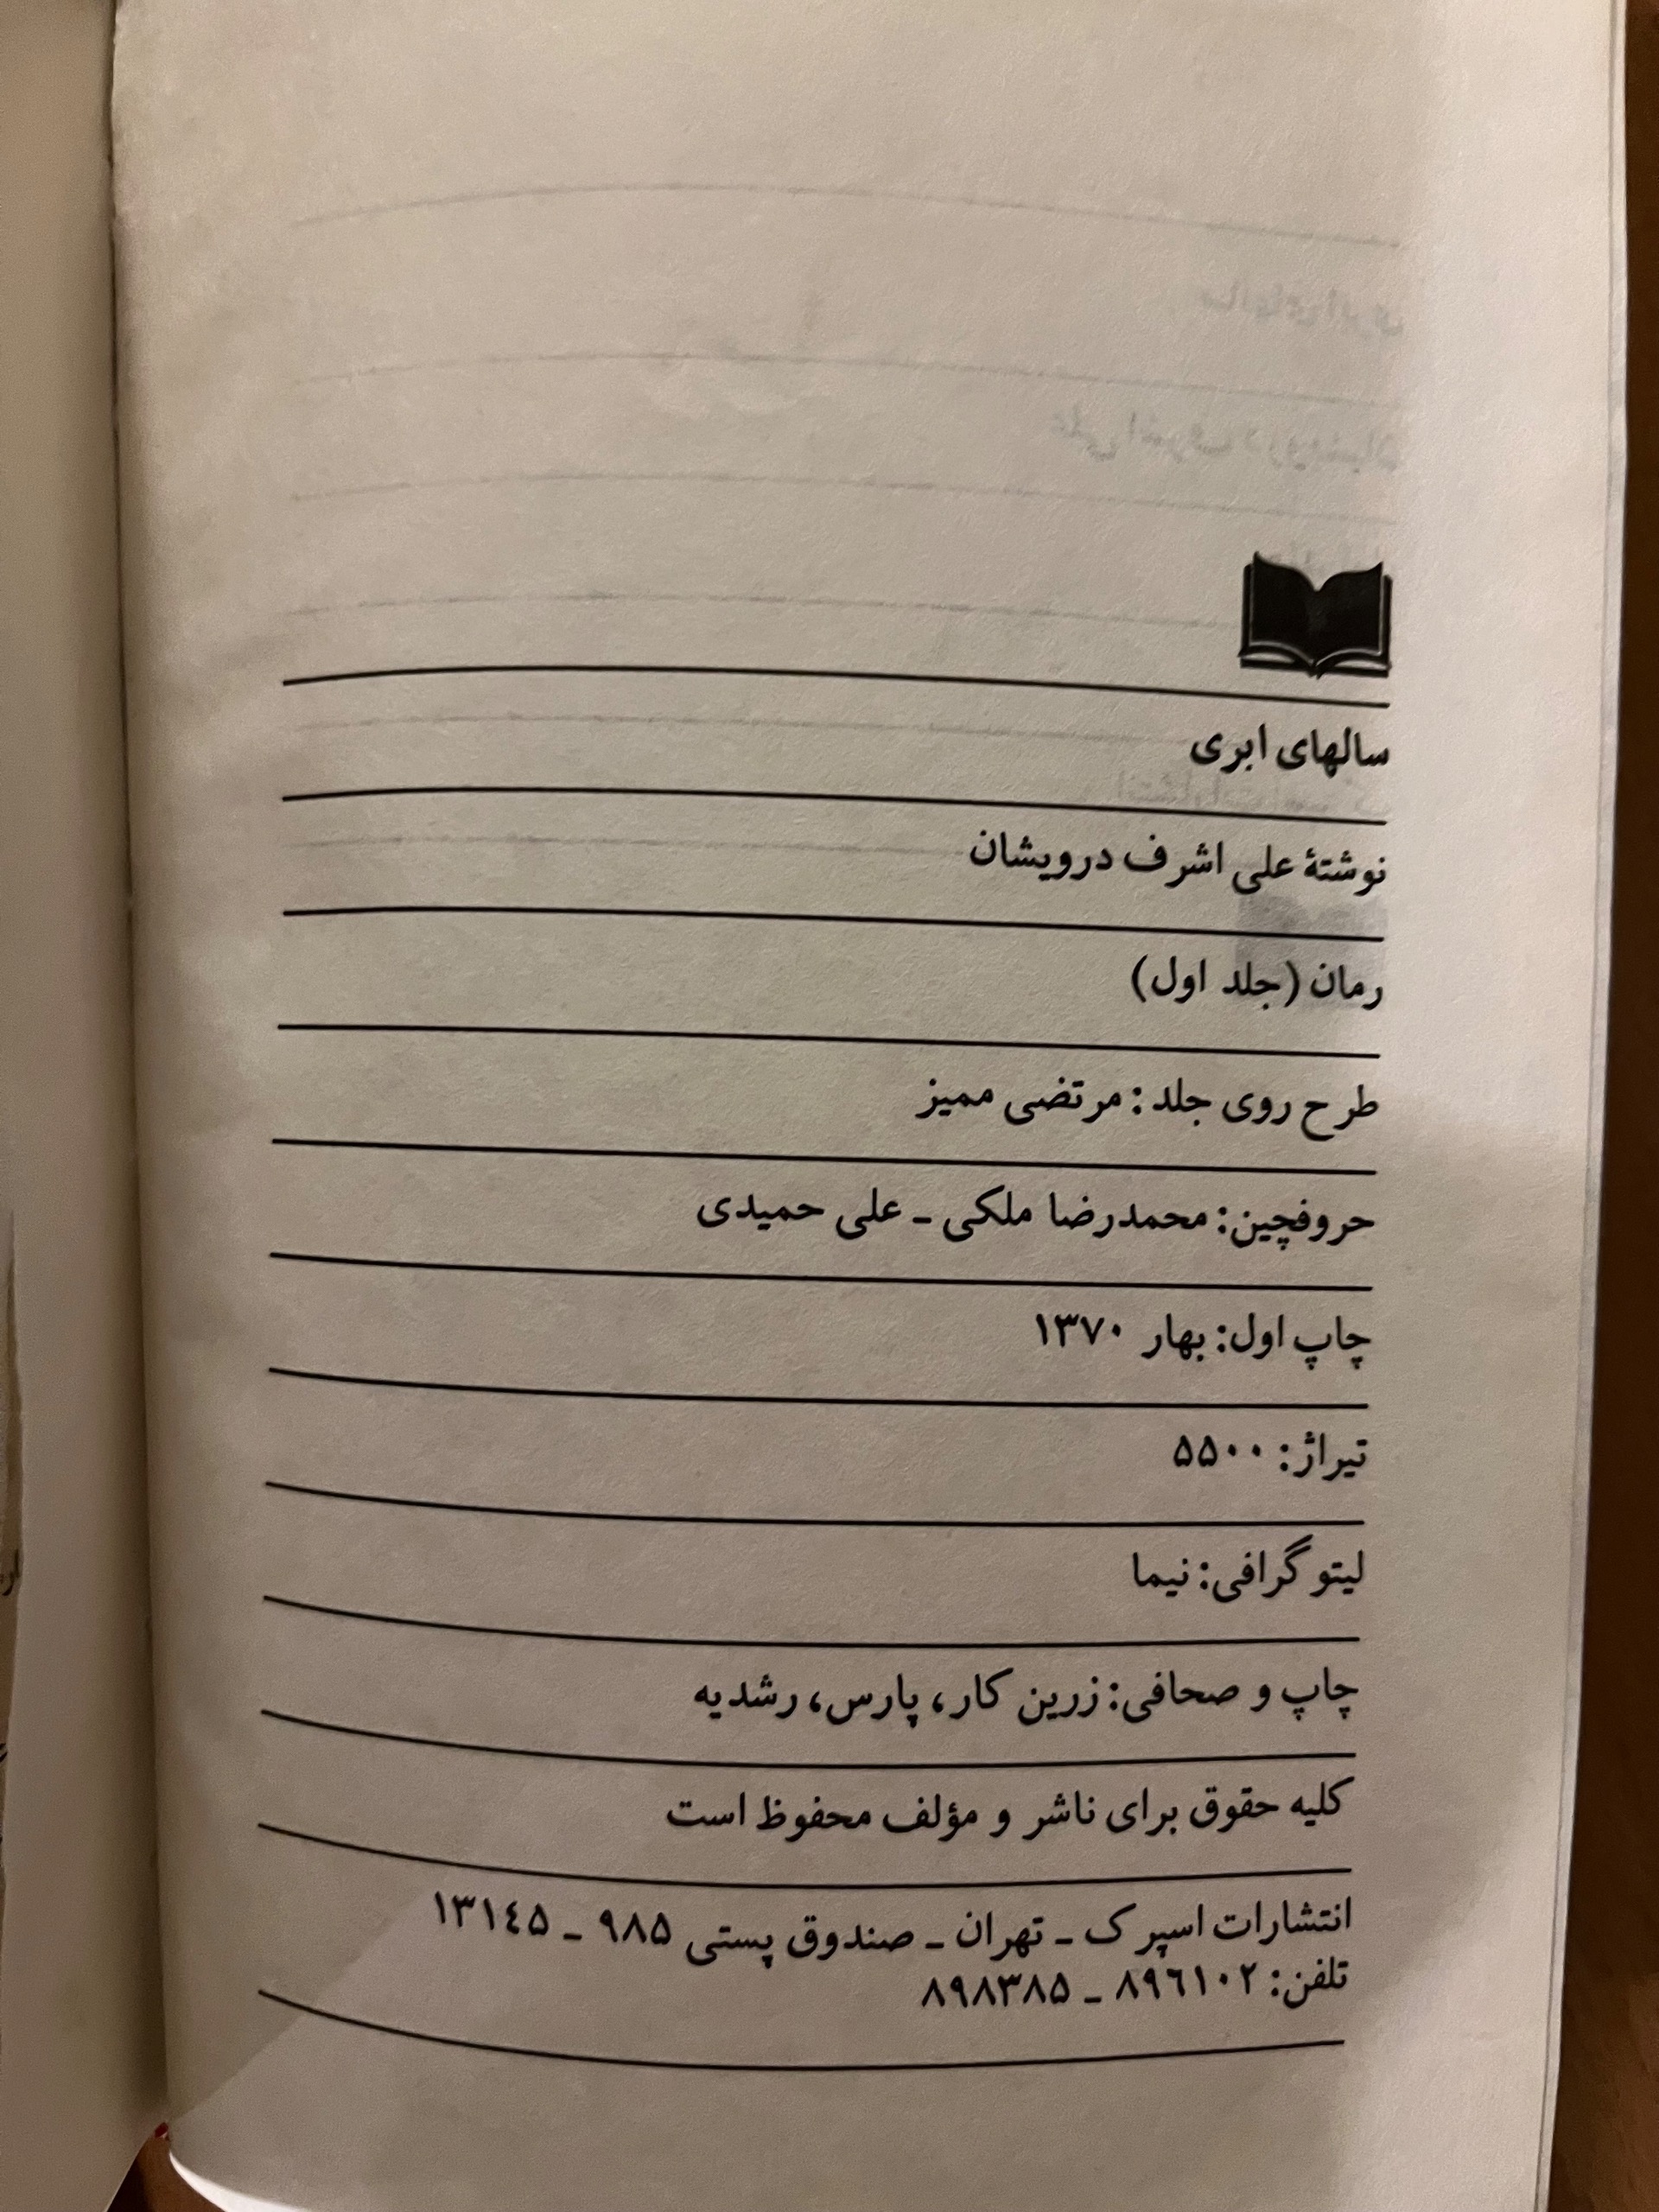 سالهای ابری
نوشتهٔ علی اشرف درویشان
رمان (جلد اول)
طرح روی جلد: مرتضی ممیز
حروفچین: محمدرضا ملکی ـ علی حمیدی
چاپ اول: بهار ۱۳۷۰
تیراژ: ۵۵۰۰
لیتوگرافی: نیما
چاپ و صحافی: زرین کار، پارس، رشدیه
کلیه حقوق برای ناشر و مؤلف محفوظ است
انتشارات اسپرک ـ تهران ـ صندوق پستی ۹۸۵ ـ ۱۳۱٤۵
تلفن: ۸۹٦۱۰۲ ـ ۸۹۸۳۸۵